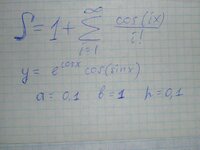 S = 1 + ∑_{i=1}^{∞} cos(ix)/i!
y = e^{cosx} cos(sinx)
a = 0,1 b = 1 h = 0,1